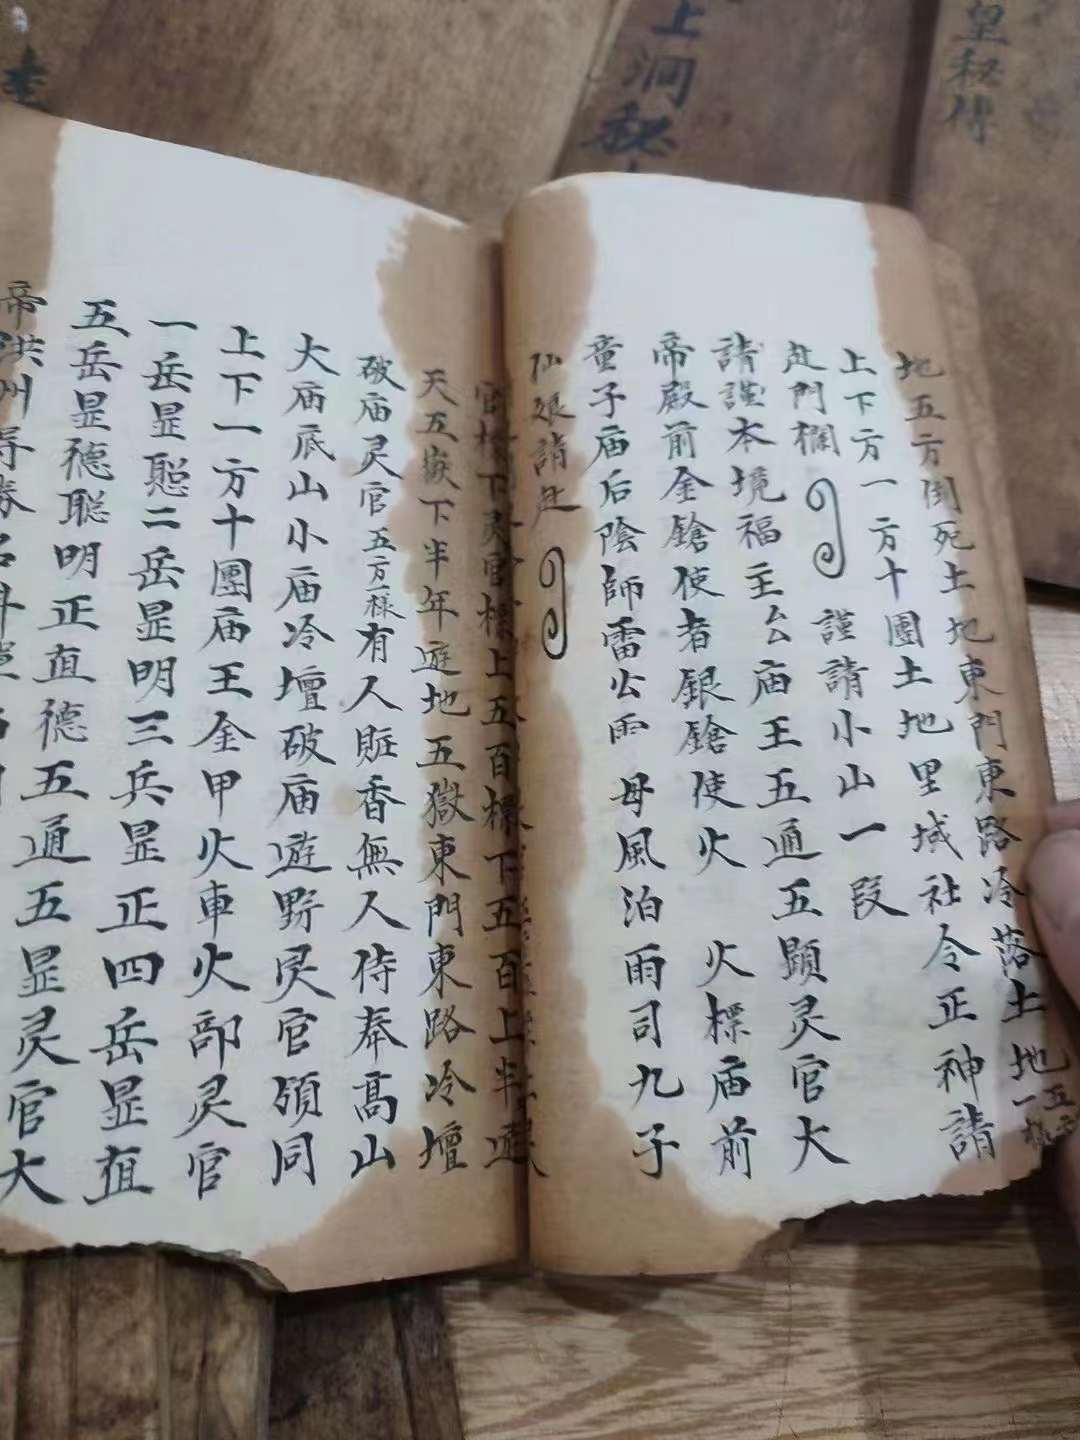 地五方倒死土地東門東路冷落土地五方一樣
上下方一方十團土地里域社令正神請
赴門欄 謹請小山一段
請謹本境福主公庙王五通五顯灵官大
帝殿前金鎗使者銀鎗使火 火標庙前
童子庙后陰師雷公雨母風泊雨司九子
仙娘請赴
官標下灵官標上五百標下五百上半遊
天五嶽下半年遊地五獄東門東路冷壇
破庙灵官五方一樣有人賍香無人侍奉高山
大庙底山小庙冷壇破庙遊野灵官領同
上下一方十團庙王金甲火車火部灵官
一岳昰聪二岳昰明三兵昰正四岳昰直
五岳昰德聪明正直德五通五昰灵官大
帝洪州
上洞秘
皇秘傳